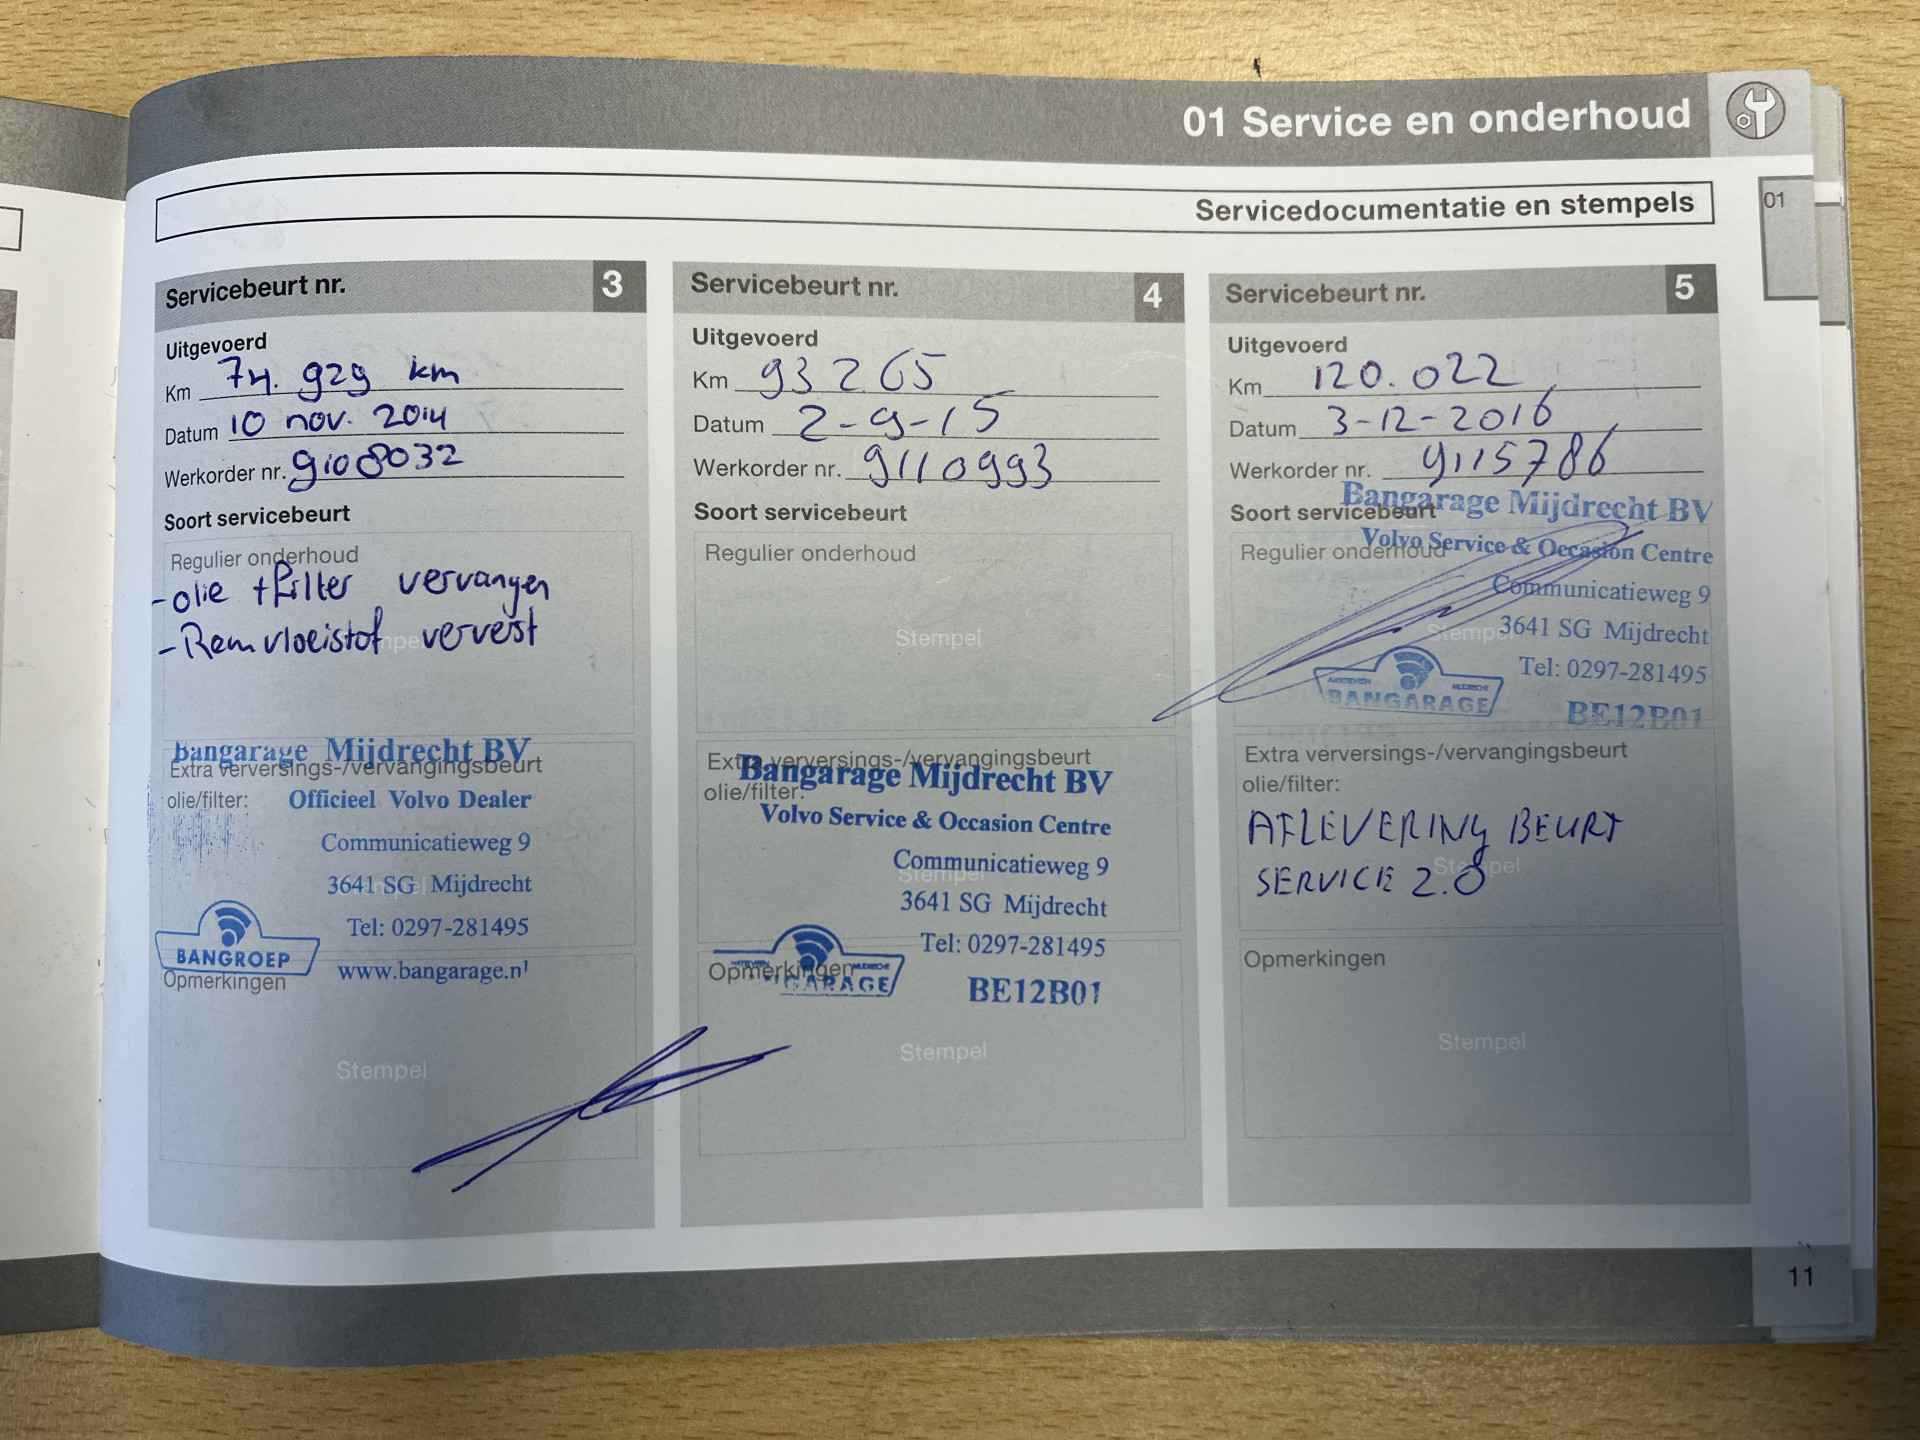 01 Service en onderhoud
Servicedocumentatie en stempels
01
Servicebeurt nr. 3
Uitgevoerd
Km 74.929 km
Datum 10 nov. 2014
Werkorder nr. 9108032
Soort servicebeurt
Regulier onderhoud
- olie + filter vervangen
- Remvloeistof ververst
Bangarage Mijdrecht BV
Extra verversings-/vervangingsbeurt
olie/filter:
Officieel Volvo Dealer
Communicatieweg 9
3641 SG Mijdrecht
Tel: 0297-281495
BANGROEP
www.bangarage.nl
Opmerkingen
Stempel
Servicebeurt nr. 4
Uitgevoerd
Km 93265
Datum 2-9-15
Werkorder nr. 9110993
Soort servicebeurt
Regulier onderhoud
Stempel
Extra verversings-/vervangingsbeurt
Bangarage Mijdrecht BV
olie/filter:
Volvo Service & Occasion Centre
Communicatieweg 9
Stempel
3641 SG Mijdrecht
Tel: 0297-281495
Opmerkingen
BE12B01
Stempel
Servicebeurt nr. 5
Uitgevoerd
Km 120.022
Datum 3-12-2016
Werkorder nr. 9115786
Bangarage Mijdrecht BV
Soort servicebeurt
Volvo Service & Occasion Centre
Regulier onderhoud
Communicatieweg 9
Stempel
3641 SG Mijdrecht
Tel: 0297-281495
BANGARAGE
BE12B01
Extra verversings-/vervangingsbeurt
olie/filter:
AFLEVERING BEURT
Stempel
SERVICE 2.0
Opmerkingen
Stempel
11